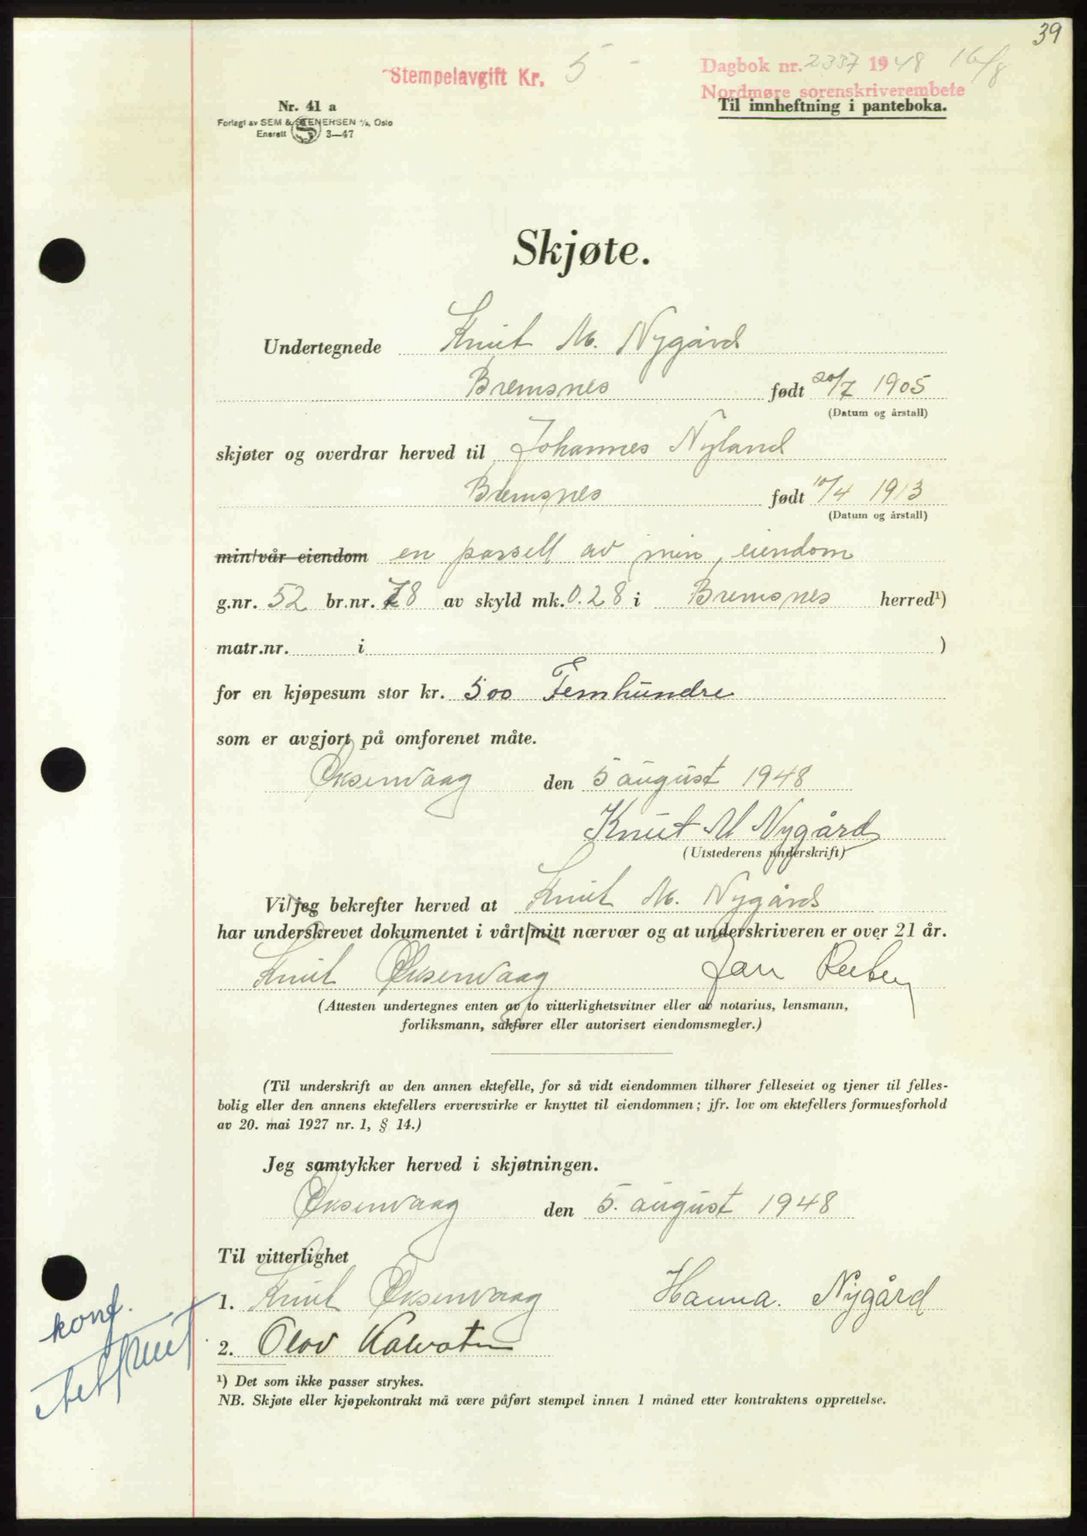 39
Stempelavgift Kr. 5 -
Dagbok nr. 2337 1948 16/8
Nordmøre sorenskriverembete
Til innheftning i panteboka.
Nr. 41 a
Forlagt av SEM & STENERSEN A/S, Oslo
Enerett S 3—47
Skjøte.
Undertegnede Knut M. Nygård
Bremsnes født 20/7 1905
(Datum og årstall)
skjøter og overdrar herved til Johannes Nyland
Bremsnes født 10/4 1913
(Datum og årstall)
min/vår eiendom en parsell av min eiendom
g.nr. 52 br.nr. 78 av skyld mk. 0.28 i Bremsnes herred¹)
matr.nr. i )
for en kjøpesum stor kr. 500 Femhundre
som er avgjort på omforenet måte.
Øksenvaag den 5 august 1948
Knut M Nygård
(Utstederens underskrift)
Vi/jeg bekrefter herved at Knut M. Nygård
har underskrevet dokumentet i vårt/mitt nærvær og at underskriveren er over 21 år.
Knut Øksenvaag Jan
(Attesten undertegnes enten av to vitterlighetsvitner eller av notarius, lensmann,
forliksmann, sakfører eller autorisert eiendomsmegler.)
(Til underskrift av den annen ektefelle, for så vidt eiendommen tilhører felleseiet og tjener til felles-
bolig eller den annens ektefellers ervervsvirke er knyttet til eiendommen; jfr. lov om ektefellers formuesforhold
av 20. mai 1927 nr. 1, § 14.)
Jeg samtykker herved i skjøtningen.
Øksenvaag den 5. august 1948
Til vitterlighet
1. Knut Øksenvaag Hanna. Nygård
2. Olav
konf.
¹) Det som ikke passer strykes.
NB. Skjøte eller kjøpekontrakt må være påført stempel innen 1 måned etter kontraktens opprettelse.